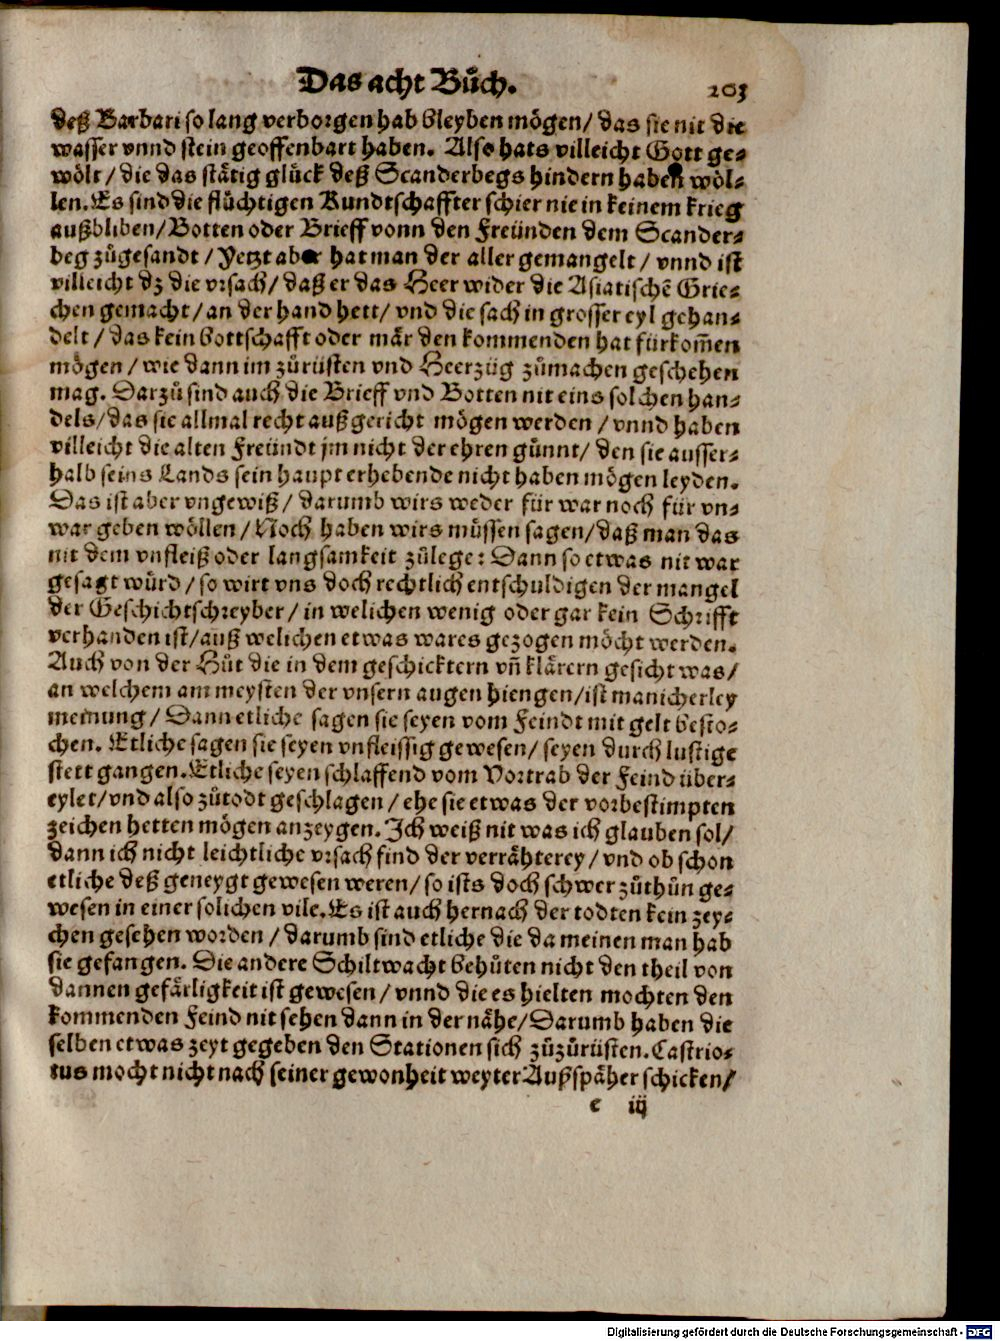 Das acht Bůch. 203
deß Barbari so lang verborgen hab bleyben mögen/ das sie nit die
wasser vnnd stein geoffenbart haben. Also hats villeicht Gott ge-
wölt/ die das stätig glück deß Scanderbegs hindern haben wöl-
len. Es sind die flüchtigen Kundtschaffter schier nie in keinem krieg
außbliben/ Botten oder Brieff vonn den Freünden dem Scander-
beg zůgesandt/ Yetzt aber hat man der aller gemangelt/ vnnd ist
villeicht dz die vrsach/ daß er das Heer wider die Asiatischē Grie-
chen gemacht/ an der hand hett/ vnd die sach in grosser eyl gehan-
delt/ das kein bottschafft oder mär den kommenden hat fürkom̄en
mögen/ wie dann im zůrüsten vnd Heerzüg zůmachen geschehen
mag. Darzů sind auch die Brieff vnd Botten nit eins solchen han-
dels/ das sie allmal recht außgericht mögen werden/ vnnd haben
villeicht die alten Freündt jm nicht der ehren günnt/ den sie ausser-
halb seins Lands sein haupt erhebende nicht haben mögen leyden.
Das ist aber vngewiß/ darumb wirs weder für war noch für vn-
war geben wöllen/ Noch haben wirs müssen sagen/ daß man das
nit dem vnfleiß oder langsamkeit zůlege: Dann so etwas nit war
gesagt würd/ so wirt vns doch rechtlich entschuldigen der mangel
der Geschichtschreyber/ in welichen wenig oder gar kein Schrifft
verhanden ist/ auß welichen etwas wares gezogen möcht werden.
Auch von der Hůt die in dem geschicktern vn̄ klärern gesicht was/
an welchem am meysten der vnsern augen hiengen/ ist manicherley
meinung/ Dann etliche sagen sie seyen vom Feindt mit gelt besto-
chen. Etliche sagen sie seyen vnfleissig gewesen/ seyen durch lustige
stett gangen. Etliche seyen schlaffend vom Vortrab der Feind über-
eylet/ vnd also zůtodt geschlagen/ ehe sie etwas der vorbestimpten
zeichen hetten mögen anzeygen. Ich weiß nit was ich glauben sol/
dann ich nicht leichtliche vrsach find der verrähterey/ vnd ob schon
etliche deß geneygt gewesen weren/ so ists doch schwer zůthůn ge-
wesen in einer solichen vile. Es ist auch hernach der todten kein zey-
chen gesehen worden/ darumb sind etliche die da meinen man hab
sie gefangen. Die andere Schiltwacht behüten nicht den theil von
dannen gefärligkeit ist gewesen/ vnnd die es hielten mochten den
kommenden Feind nit sehen dann in der nähe/ Darumb haben die
selben etwas zeyt gegeben den Stationen sich zůzůrüsten. Castrio-
tus mocht nicht nach seiner gewonheit weyter Außspäher schicken/
e iij
Digitalisierung gefördert durch die Deutsche Forschungsgemeinschaft - DFG